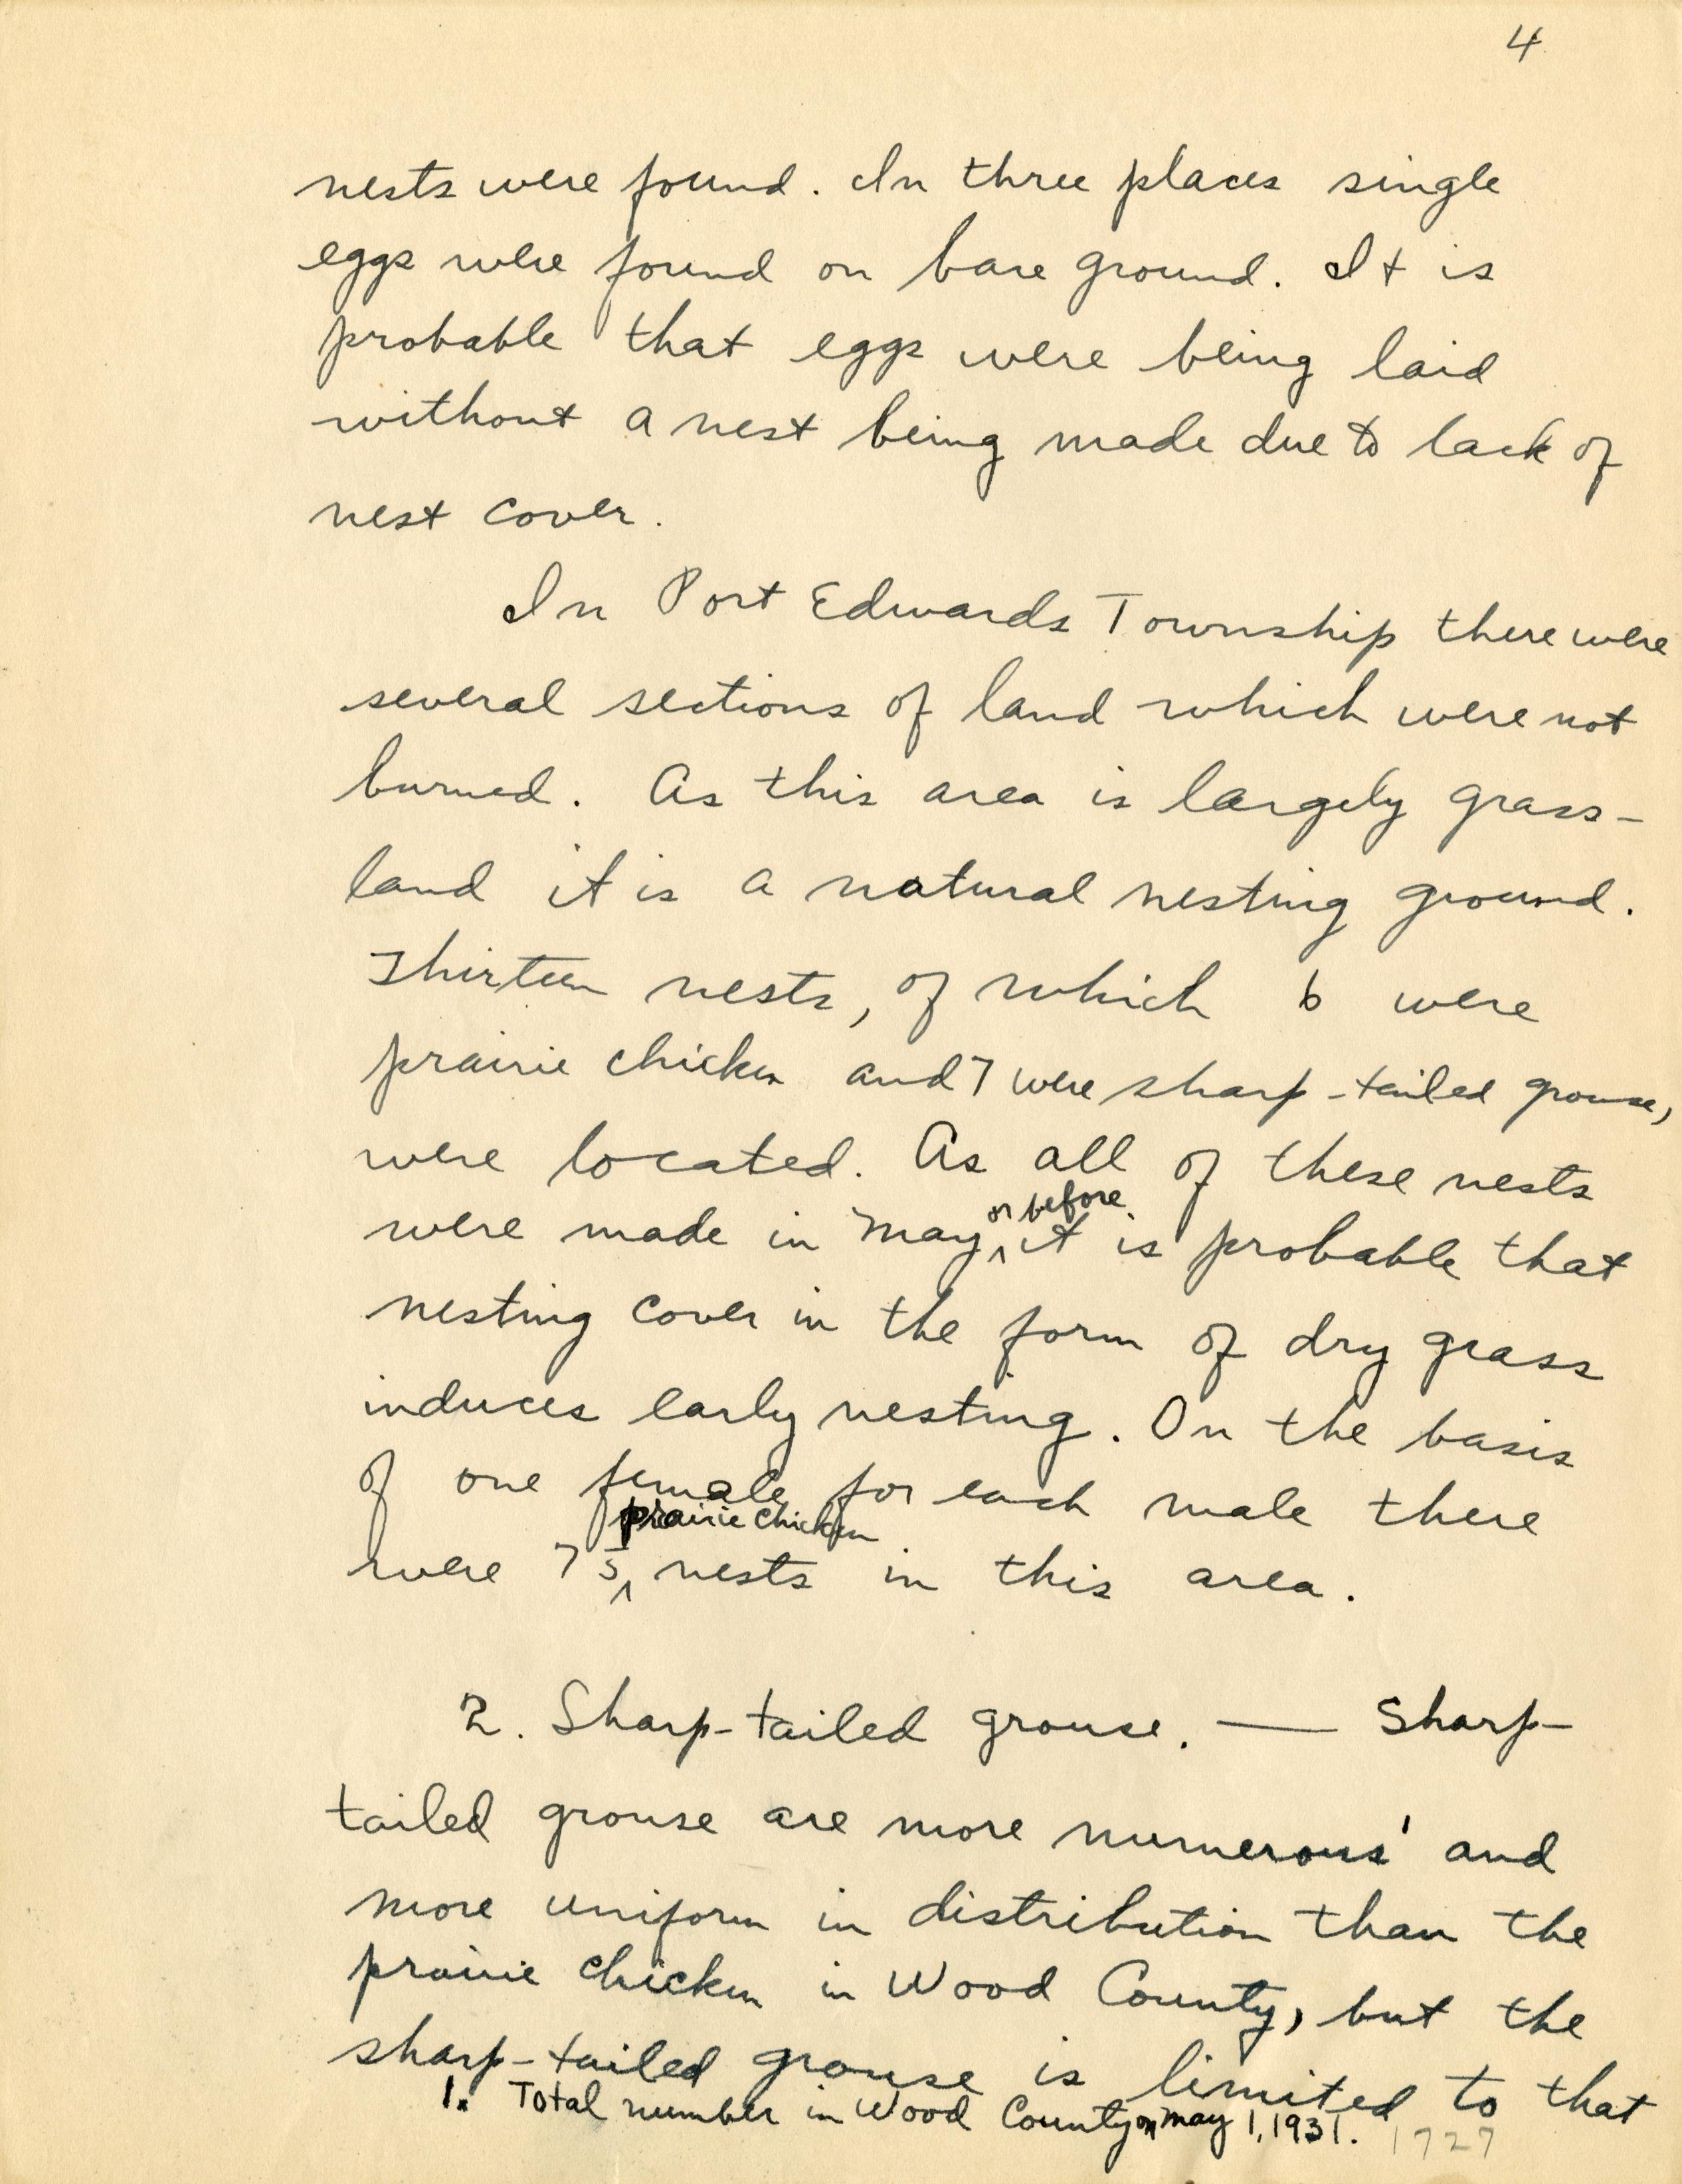 4
nests were found. In three places single
eggs were found on bare ground. It is
probable that eggs were being laid
without a nest being made due to lack of
nest cover.
In Port Edwards Township there were
several sections of land which were not
burned. As this area is largely grass-
land it is a natural nesting ground.
Thirteen nests, of which 6 were
prairie chicken and 7 were sharp-tailed grouse,
were located. As all of these nests
or before
were made in May, it is probable that
nesting cover in the form of dry grass
induces early nesting. On the basis
of one female for each male there
prairie chicken
were 75 nests in this area.
2. Sharp-tailed grouse. — Sharp-
tailed grouse are more numerous¹ and
more uniform in distribution than the
prairie chicken in Wood County, but the
sharp-tailed grouse is limited to that
1. Total number in Wood County on May 1, 1931. 1727